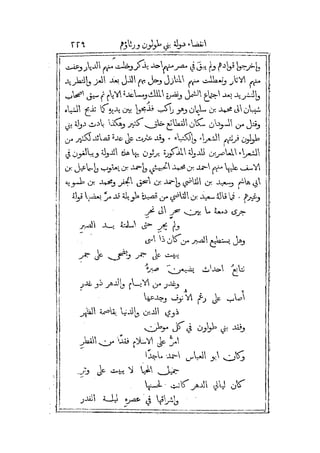 انقضاء دولة بني طولون ورثاؤهم ٢٢٦
واخرجوا قوادم ولم يبق في مصر منهم احد يذكر وخلت منهم الديار وعفت
منهم الاثار وتعطلت منهم المنازل وحل بهم الذل بعد العز والتطريد
والتشريد بعد اجتماع الشمل ونضرة الملك ومساعدة الايام ثم سيق اصحاب
شيبان الى محمد بن سليمان وهو راكب فذبحوا بين يديه كما تذبح الشياه
وقتل من السودان سكان القطائع خلق كثير وهكذا بادت دولة بني
طولون فرثتهم الشعراء والكتاب . وقد عثرت على عدة قصائد لكثير من
الشعراء المعاصرين للدولة المذكورة يرثون بها هاته الدولة ويبالغون في
الاسف عليها منهم احمد بن محمد الحبيشي واحمد بن يعقوب واسماعيل بن
ابي هاشم وسعيد بن القاضي واحمد بن اسحق الجفر ومحمد بن طشويه
وغيرهم . فما قاله سعيد بن القاضي من قصيدة طويلة قد مر بعضها قوله
جرى دمعه ما بين سحر الى نحر
ولم يجر حتى اسلمته يد الصبر
وهل يستطيع الصبر من كان ذا اسى
يبيت على جمر ويضحي على جمر
تتابع احداث يضيعن صبره
وغدر من الايام والدهر ذو غدر
أصاب على رغم الأنوف وجدعها
ذوي الدين والدنيا بقاصمة الظهر
وفقد بني طولون في كل موطن
امرّ على الاسلام فقدًا من القطر
وكان ابو العباس احمد ماجدًا
جميل المحيا لا يبيت على وتر
كان ليالي الدهر كانت لحسنها
واشراقها في عصره ليلة القدر